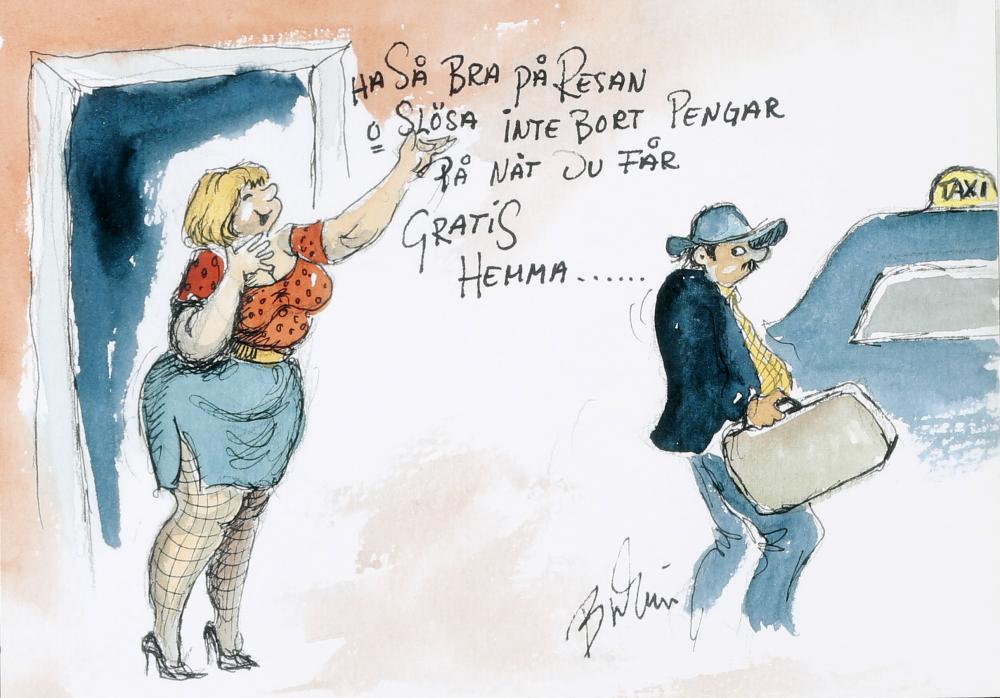 HA SÅ BRA PÅ RESAN
O SLÖSA INTE BORT PENGAR
PÅ NÅT DU FÅR
GRATIS
HEMMA......
TAXI